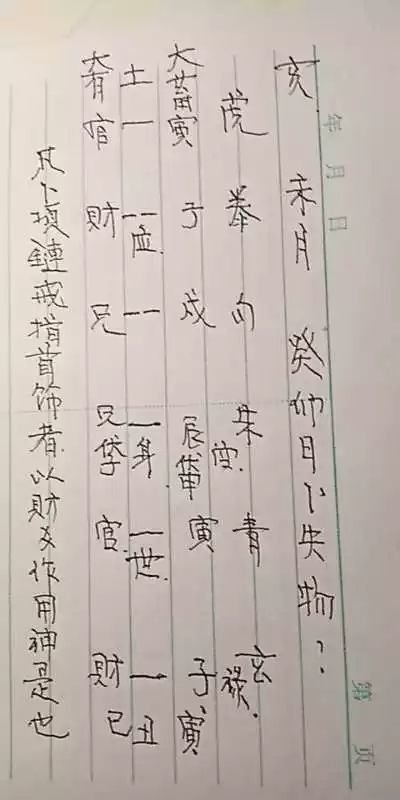 年 月 日 第 页
亥 未月 癸卯日卜失物？
虎 勾 朱 青 玄
空 禄.
大畜寅 子 戌 辰申 寅 子寅
土 一 -- 应 -- 一身 一世 一 丑
官 財 兄 兄 官 財巳
凡卜項鏈戒指首饰者以財爻作用神是也